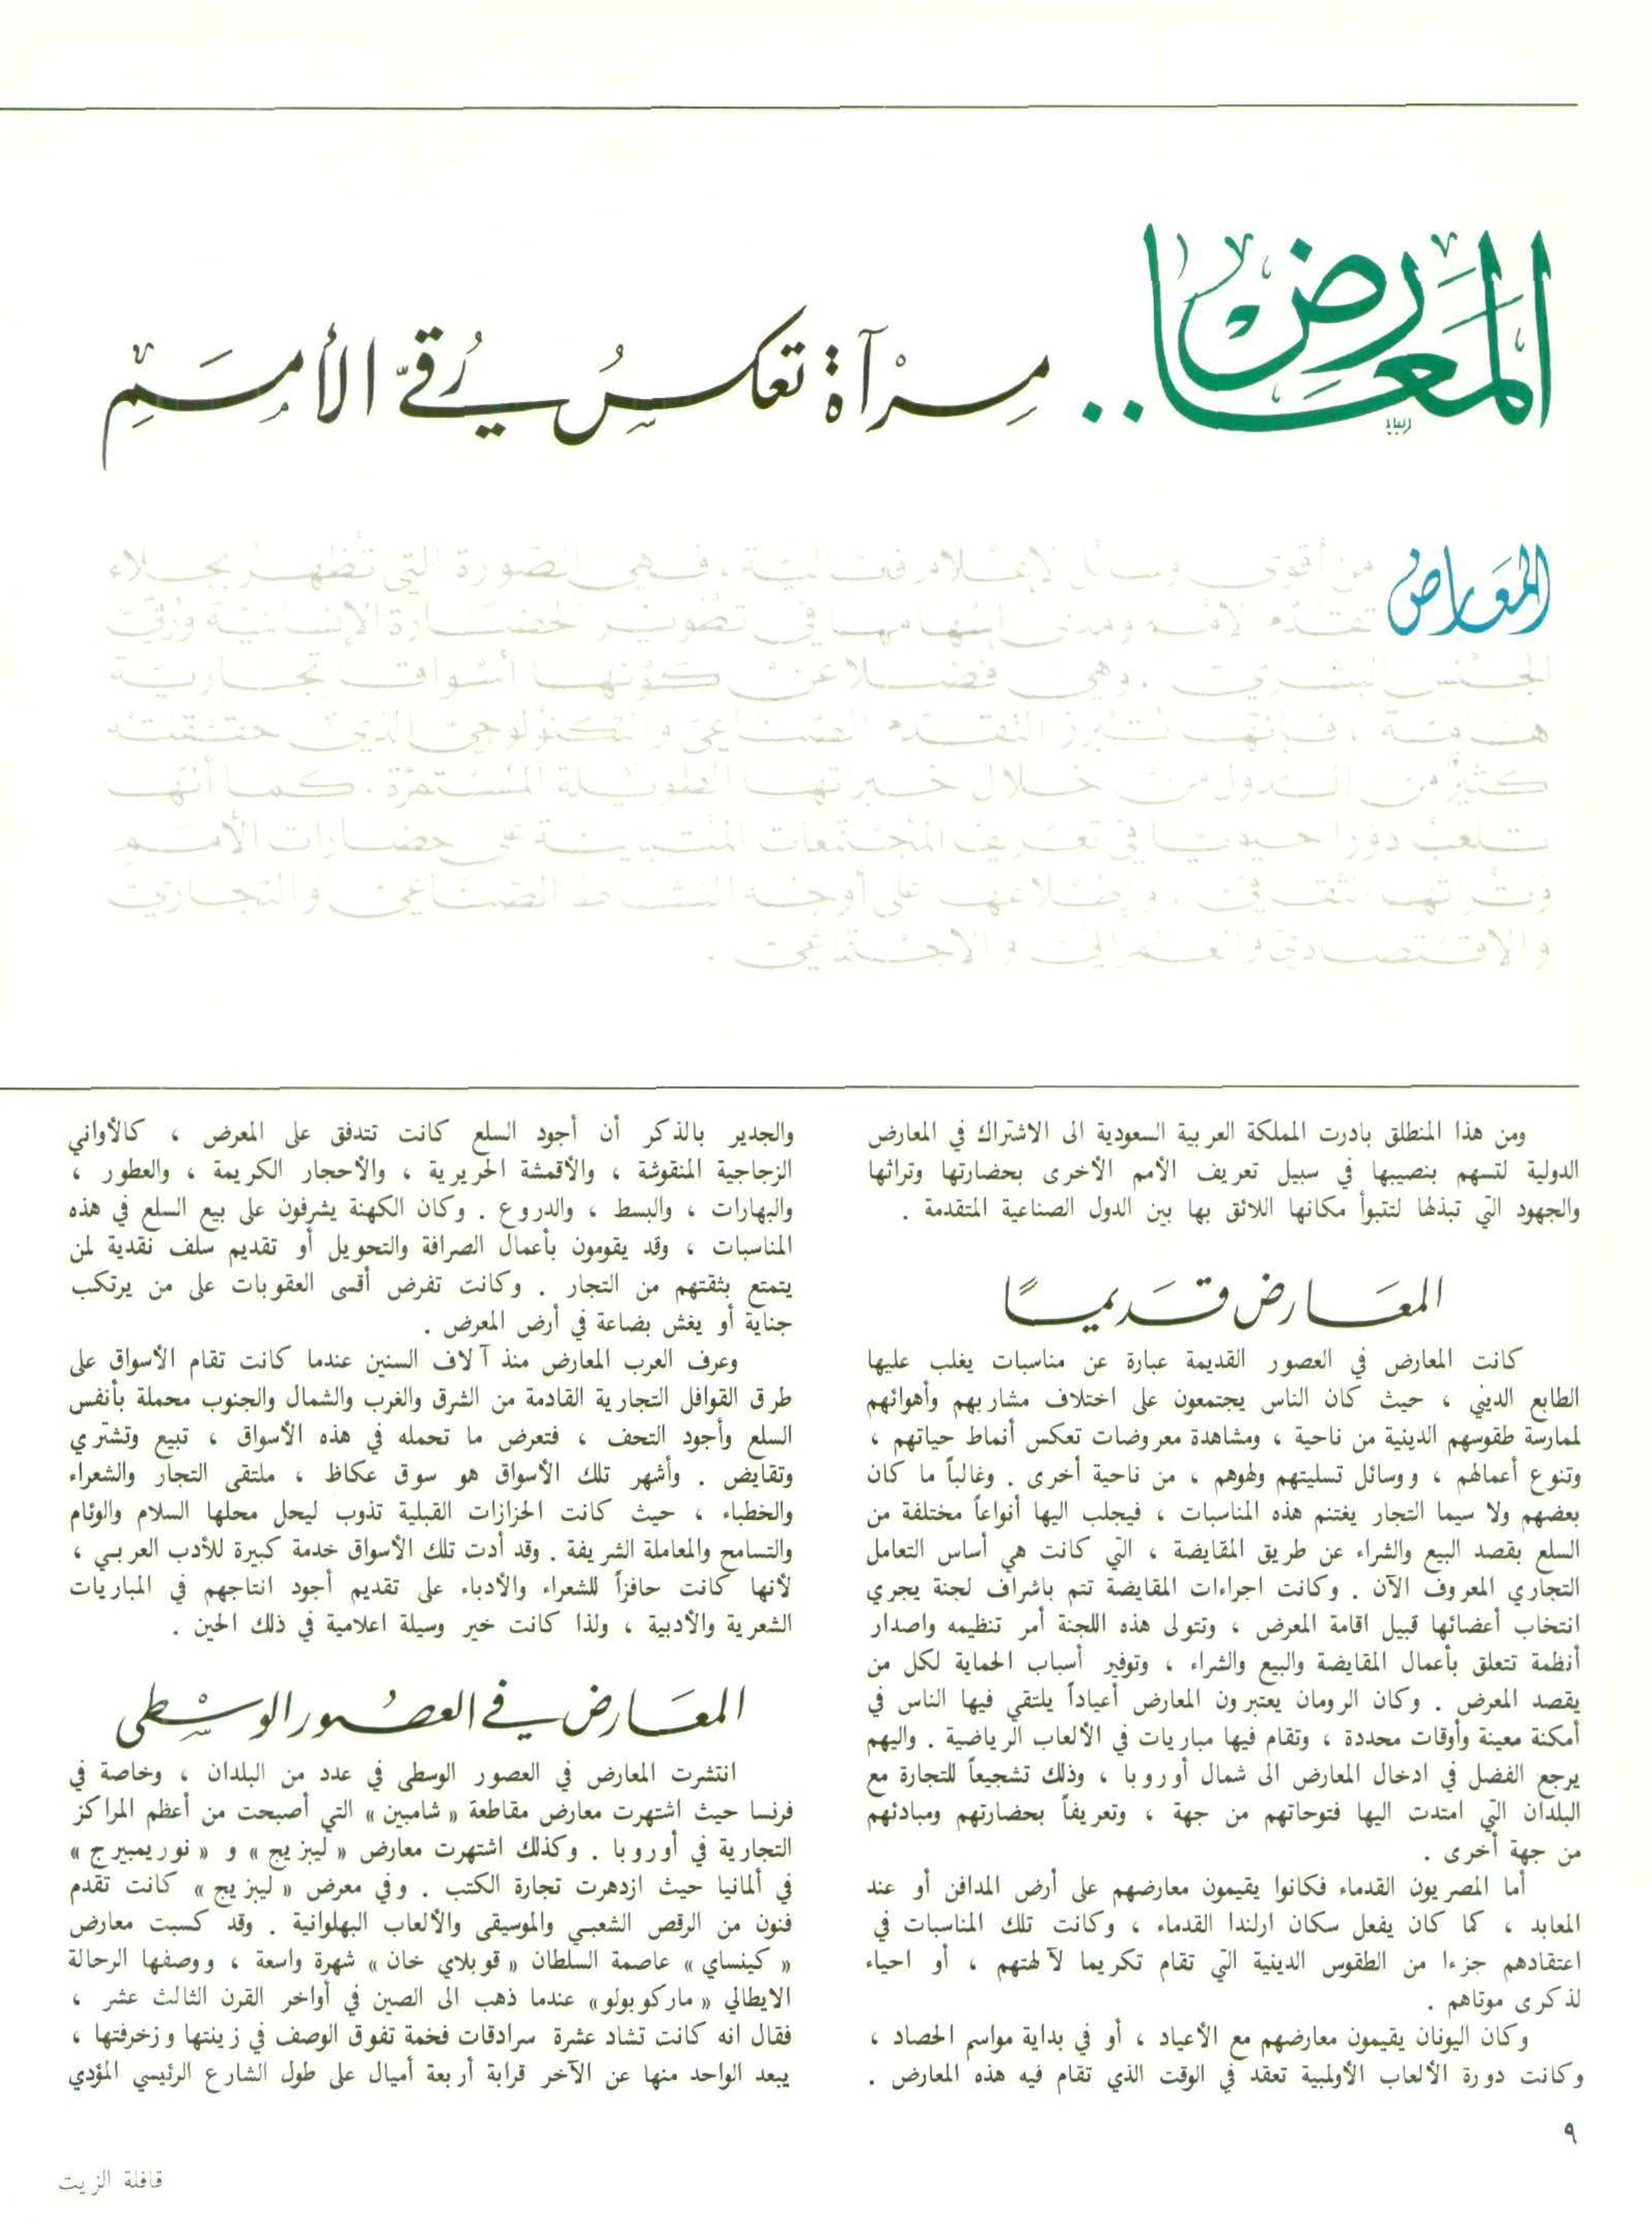 المعارض .. مرآة تعكس رقي الأمم
المعارض من أقوى وسائل الإعلام فعالية . فهي الصورة التي تظهر بجلاء
تقدم الأمم ومدى إسهامها في تطوير الحضارة الإنسانية ورقي
الجنس البشري . وهي فضلا عن كونها أسواقا تجارية
هامة ، فإنها تبرز التقدم الصناعي والتكنولوجي الذي حققته
كثير من الدول من خلال خبرتها الطويلة المستمرة . كما أنها
تلعب دورا حيويا في تعريف المجتمعات المتباينة على حضارات الأمم
وتراثها الثقافي . وإطلاعها على أوجه النشاط الصناعي والتجاري
والاقتصادي والعمراني والاجتماعي .
ومن هذا المنطلق بادرت المملكة العربية السعودية الى الاشتراك في المعارض
الدولية لتسهم بنصيبها في سبيل تعريف الأمم الأخرى بحضارتها وتراثها
والجهود التي تبذلها لتتبوأ مكانها اللائق بها بين الدول الصناعية المتقدمة .
المعارض قديماً
كانت المعارض في العصور القديمة عبارة عن مناسبات يغلب عليها
الطابع الديني ، حيث كان الناس يجتمعون على اختلاف مشاربهم وأهوائهم
لممارسة طقوسهم الدينية من ناحية ، ومشاهدة معروضات تعكس أنماط حياتهم ،
وتنوع أعمالهم ، ووسائل تسليتهم ولهوهم ، من ناحية أخرى . وغالباً ما كان
بعضهم ولا سيما التجار يغتنم هذه المناسبات ، فيجلب اليها أنواعاً مختلفة من
السلع بقصد البيع والشراء عن طريق المقايضة ، التي كانت هي أساس التعامل
التجاري المعروف الآن . وكانت اجراءات المقايضة تتم باشراف لجنة يجري
انتخاب أعضائها قبيل اقامة المعرض ، وتتولى هذه اللجنة أمر تنظيمه واصدار
أنظمة تتعلق بأعمال المقايضة والبيع والشراء ، وتوفير أسباب الحماية لكل من
يقصد المعرض . وكان الرومان يعتبرون المعارض أعياداً يلتقي فيها الناس في
أمكنة معينة وأوقات محددة ، وتقام فيها مباريات في الألعاب الرياضية . واليهم
يرجع الفضل في ادخال المعارض الى شمال أوروبا ، وذلك تشجيعاً للتجارة مع
البلدان التي امتدت اليها فتوحاتهم من جهة ، وتعريفاً بحضارتهم ومبادئهم
من جهة أخرى .
أما المصريون القدماء فكانوا يقيمون معارضهم على أرض المدافن أو عند
المعابد ، كما كان يفعل سكان ارلندا القدماء ، وكانت تلك المناسبات في
اعتقادهم جزءا من الطقوس الدينية التي تقام تكريما لآلهتهم ، أو احياء
لذكرى موتاهم .
وكان اليونان يقيمون معارضهم مع الأعياد ، أو في بداية مواسم الحصاد ،
وكانت دورة الألعاب الأولمبية تعقد في الوقت الذي تقام فيه هذه المعارض .
والجدير بالذكر أن أجود السلع كانت تتدفق على المعرض ، كالأواني
الزجاجية المنقوشة ، والأقمشة الحريرية ، والأحجار الكريمة ، والعطور ،
والبهارات ، والبسط ، والدروع . وكان الكهنة يشرفون على بيع السلع في هذه
المناسبات ، وقد يقومون بأعمال الصرافة والتحويل أو تقديم سلف نقدية لمن
يتمتع بثقتهم من التجار . وكانت تفرض أقسى العقوبات على من يرتكب
جناية أو يغش بضاعة في أرض المعرض .
وعرف العرب المعارض منذ آلاف السنين عندما كانت تقام الأسواق على
طرق القوافل التجارية القادمة من الشرق والغرب والشمال والجنوب محملة بأنفس
السلع وأجود التحف ، فتعرض ما تحمله في هذه الأسواق ، تبيع وتشتري
وتقايض . وأشهر تلك الأسواق هو سوق عكاظ ، ملتقى التجار والشعراء
والخطباء ، حيث كانت الحزازات القبلية تذوب ليحل محلها السلام والوئام
والتسامح والمعاملة الشريفة . وقد أدت تلك الأسواق خدمة كبيرة للأدب العربي ،
لأنها كانت حافزاً للشعراء والأدباء على تقديم أجود انتاجهم في المباريات
الشعرية والأدبية ، ولذا كانت خير وسيلة اعلامية في ذلك الحين .
المعارض في العصور الوسطى
انتشرت المعارض في العصور الوسطى في عدد من البلدان ، وخاصة في
فرنسا حيث اشتهرت معارض مقاطعة « شامبين » التي أصبحت من أعظم المراكز
التجارية في أوروبا . وكذلك اشتهرت معارض « ليبزيج » و « نوريمبيرج »
في ألمانيا حيث ازدهرت تجارة الكتب . وفي معرض « ليبزيج » كانت تقدم
فنون من الرقص الشعبي والموسيقى والألعاب البهلوانية . وقد كسبت معارض
« كينساي » عاصمة السلطان « قوبلاي خان » شهرة واسعة ، ووصفها الرحالة
الايطالي « ماركو بولو » عندما ذهب الى الصين في أواخر القرن الثالث عشر ،
فقال انه كانت تشاد عشرة سرادقات فخمة تفوق الوصف في زينتها وزخرفتها ،
يبعد الواحد منها عن الآخر قرابة أربعة أميال على طول الشارع الرئيسي المؤدي
٩
قافلة الزيت